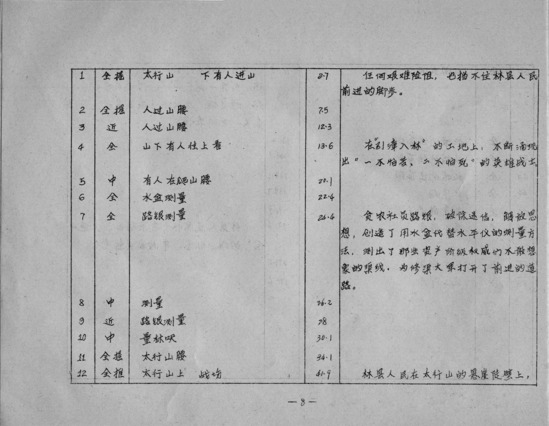 1 全摇 太行山 下有人进山 2.7 任何艰难险阻，也挡不住林县人民
前进的脚步。
2 全摇 人过山腰 7.5
3 近 人过山腰 12.3
4 全 山下有人往上看 13.6 在"引漳入林"的土地上，不断涌现
出"一不怕苦，二不怕死"的英雄战士
5 中 有人在山腰
6 全 水盆测量 22.4
7 全 路银测量 24.4 贫农社员路银，破除迷信，解放思
想，创造了用水盆代替水平仪的测量方
法，测出了那些资产阶级权威们不敢想
象的渠线，为修渠大军打开了前进的道
路。
8 中 测量 26.2
9 近 路银测量 28
10 中 量林呎 30.1
11 全摇 太行山腰 34.1
12 全摇 太行山上 战场 41.9 林县人民在太行山的悬崖陡壁上，
— 8 —